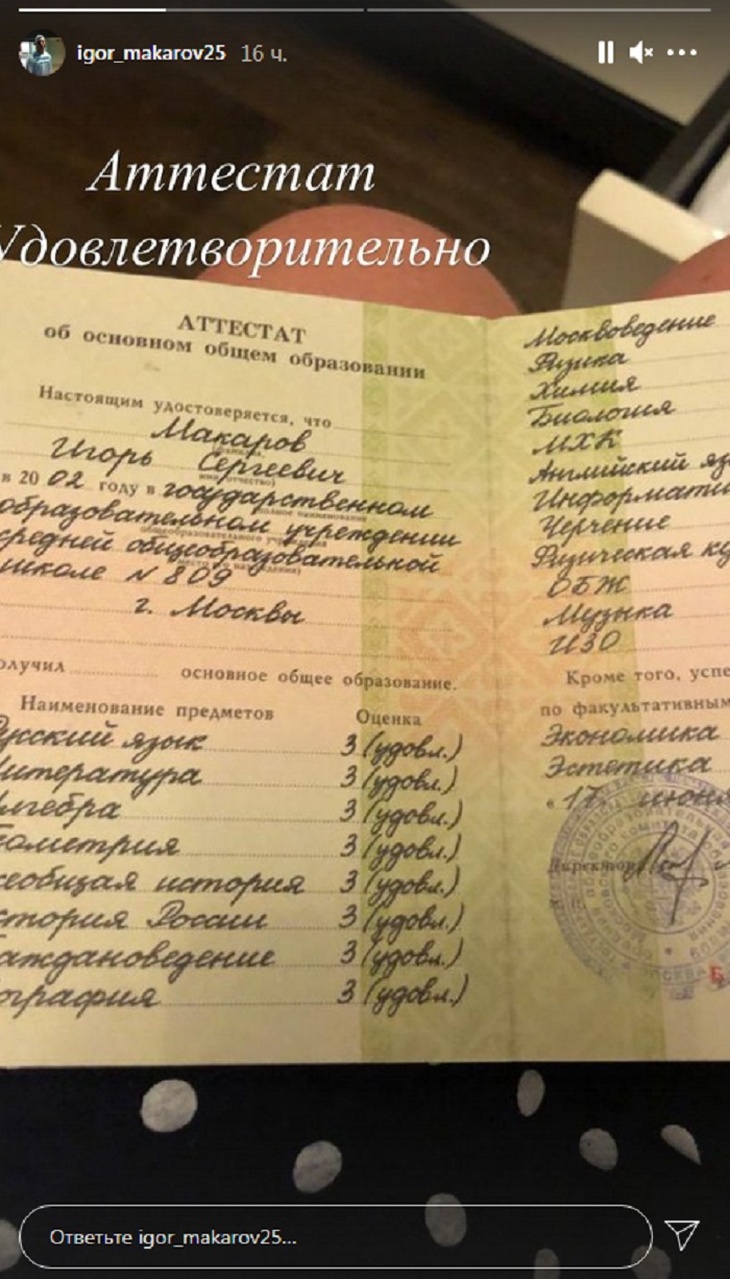 igor_makarov25 16 ч.
Аттестат
Удовлетворительно
АТТЕСТАТ
об основном общем образовании
Настоящим удостоверяется, что
Макаров
Игорь Сергеевич
в 2002 году в государственном
образовательном учреждении
средней общеобразовательной
школе N 809
г. Москвы
олучил основное общее образование.
Наименование предметов Оценка
Русский язык 3 (удовл.)
Литература 3 (удовл.)
лгебра 3 (удовл.)
еометрия 3 (удовл.)
сеобщая история 3 (удовл.)
стория России 3 (удовл.)
аждановедение 3 (удовл.)
ография 3 (удовл.)
Москвоведение
Физика
Химия
Биология
МХК
Английский яз
Информати
Черчение
Физическая ку
ОБЖ
Музыка
ИЗО
Кроме того, успе
по факультативным
Экономика
Эстетика
« 17 июня
Директор
МОСКВА
Б
Ответьте igor_makarov25...